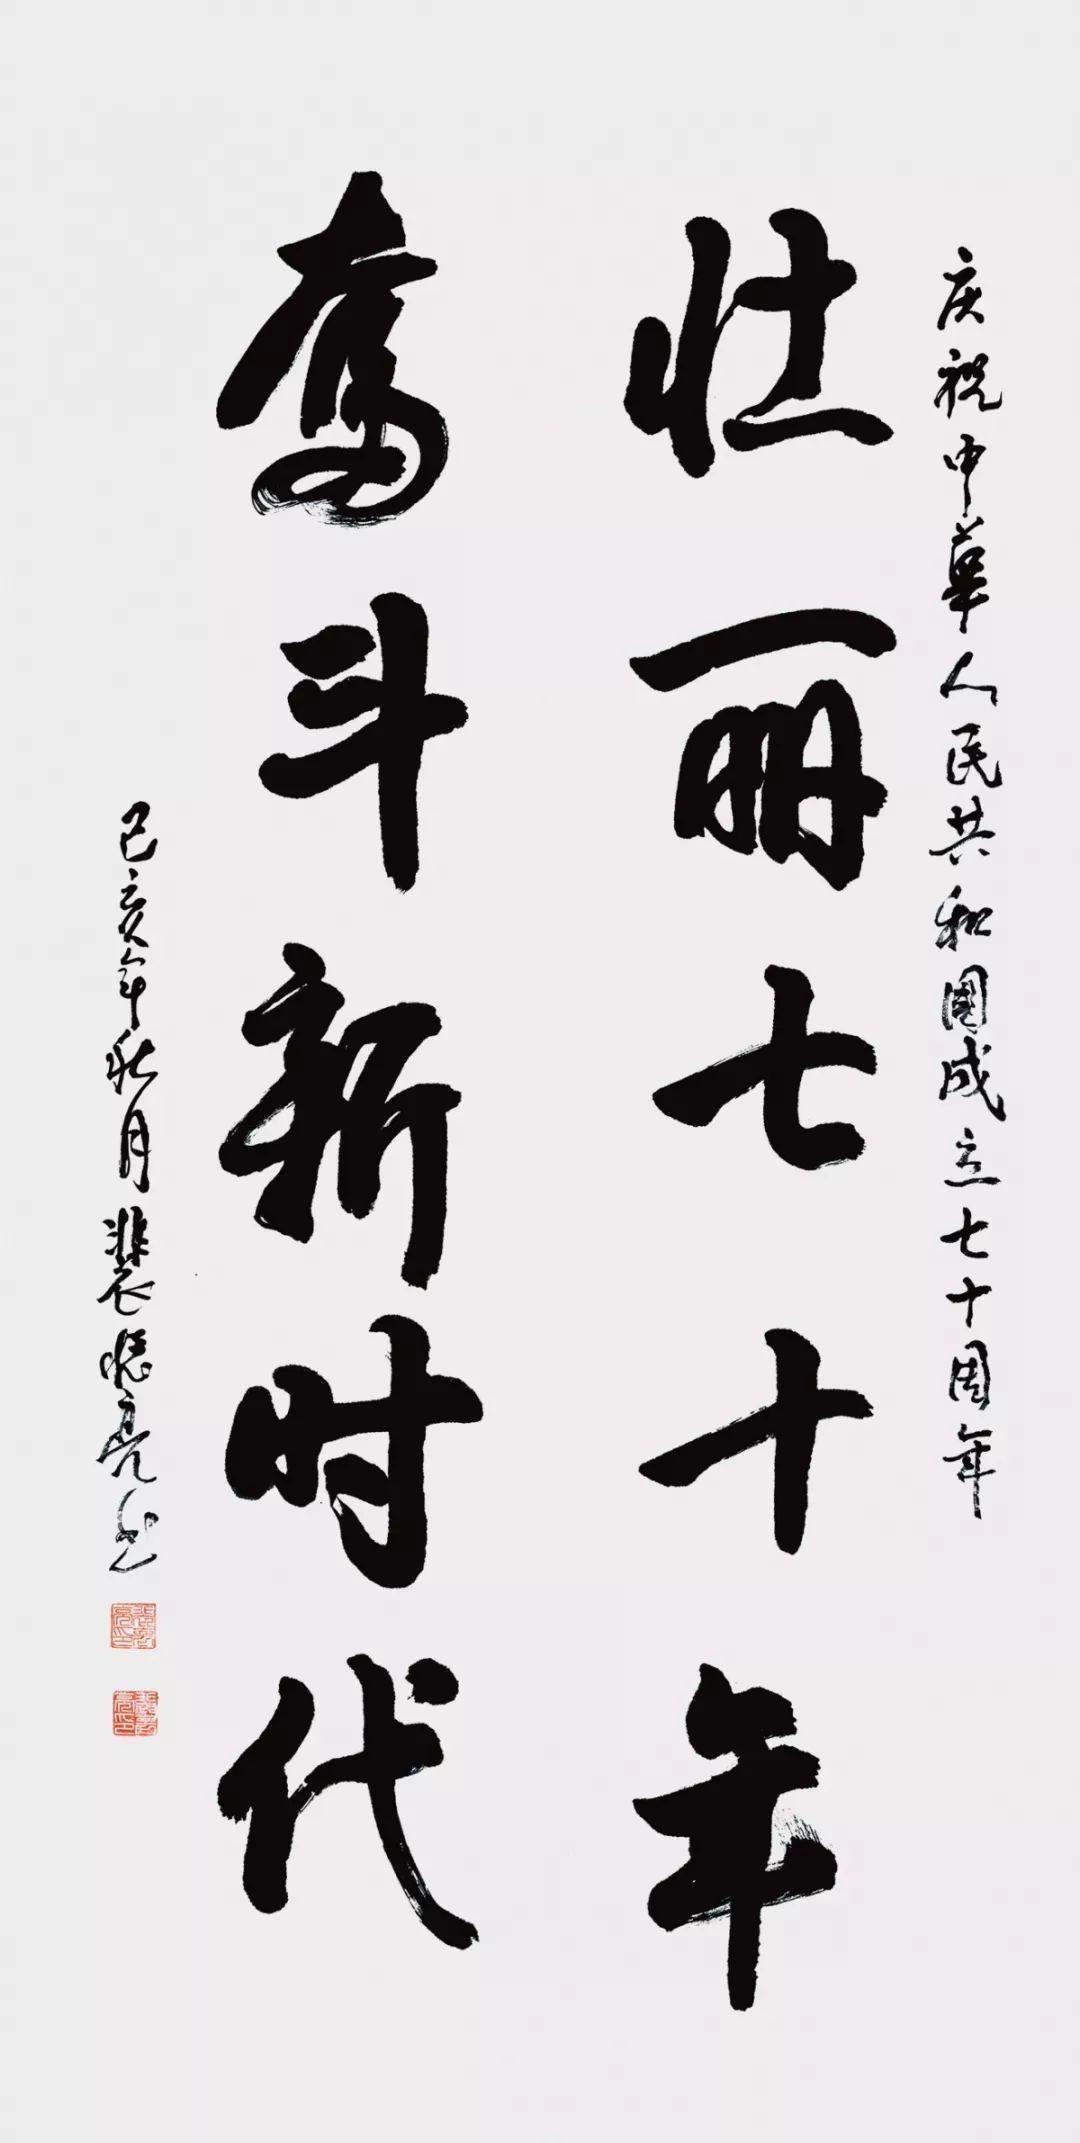 庆祝中华人民共和国成立七十周年
壮丽七十年
奋斗新时代
己亥年秋月裴